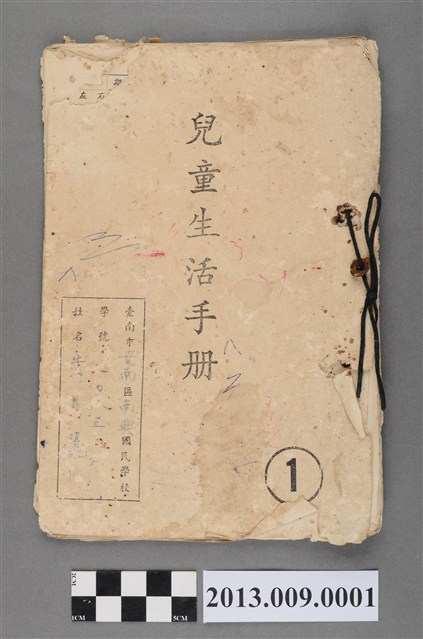 兒童生活手册
臺南市安南區南興國民學校
學號
姓名 黃
1
2CM
1CM
5CM
2013.009.0001